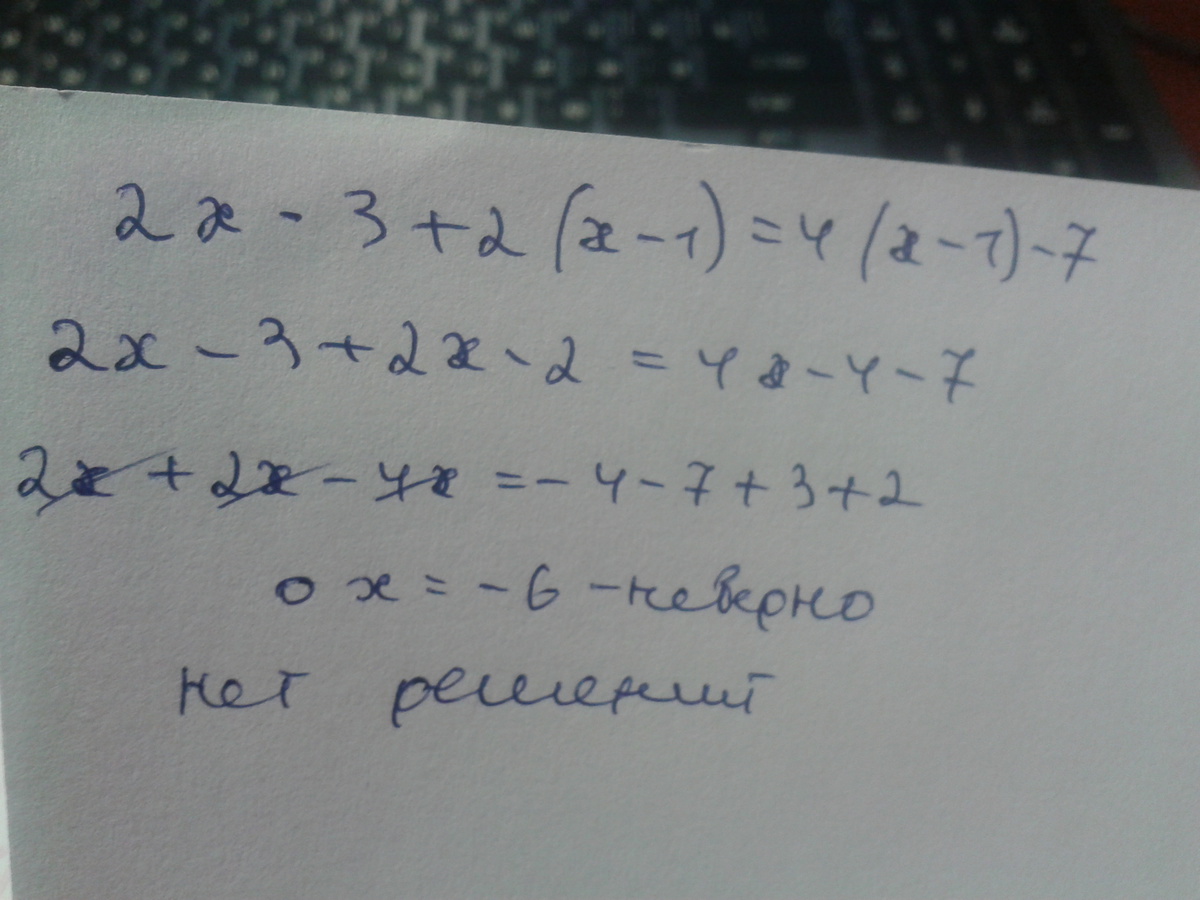 2x - 3 + 2 (x - 1) = 4 (x - 1) - 7
2x - 3 + 2x - 2 = 4x - 4 - 7
2x + 2x - 4x = - 4 - 7 + 3 + 2
0 x = - 6 - неверно
нет решений